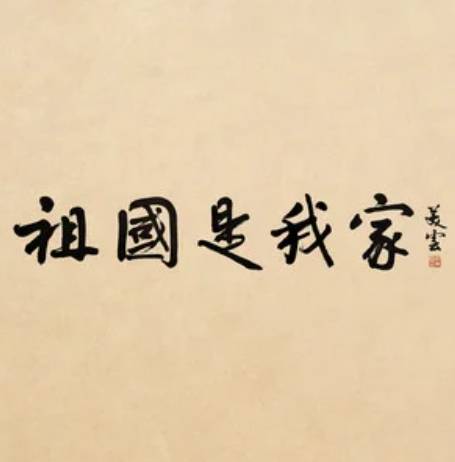 祖國是我家
美雲